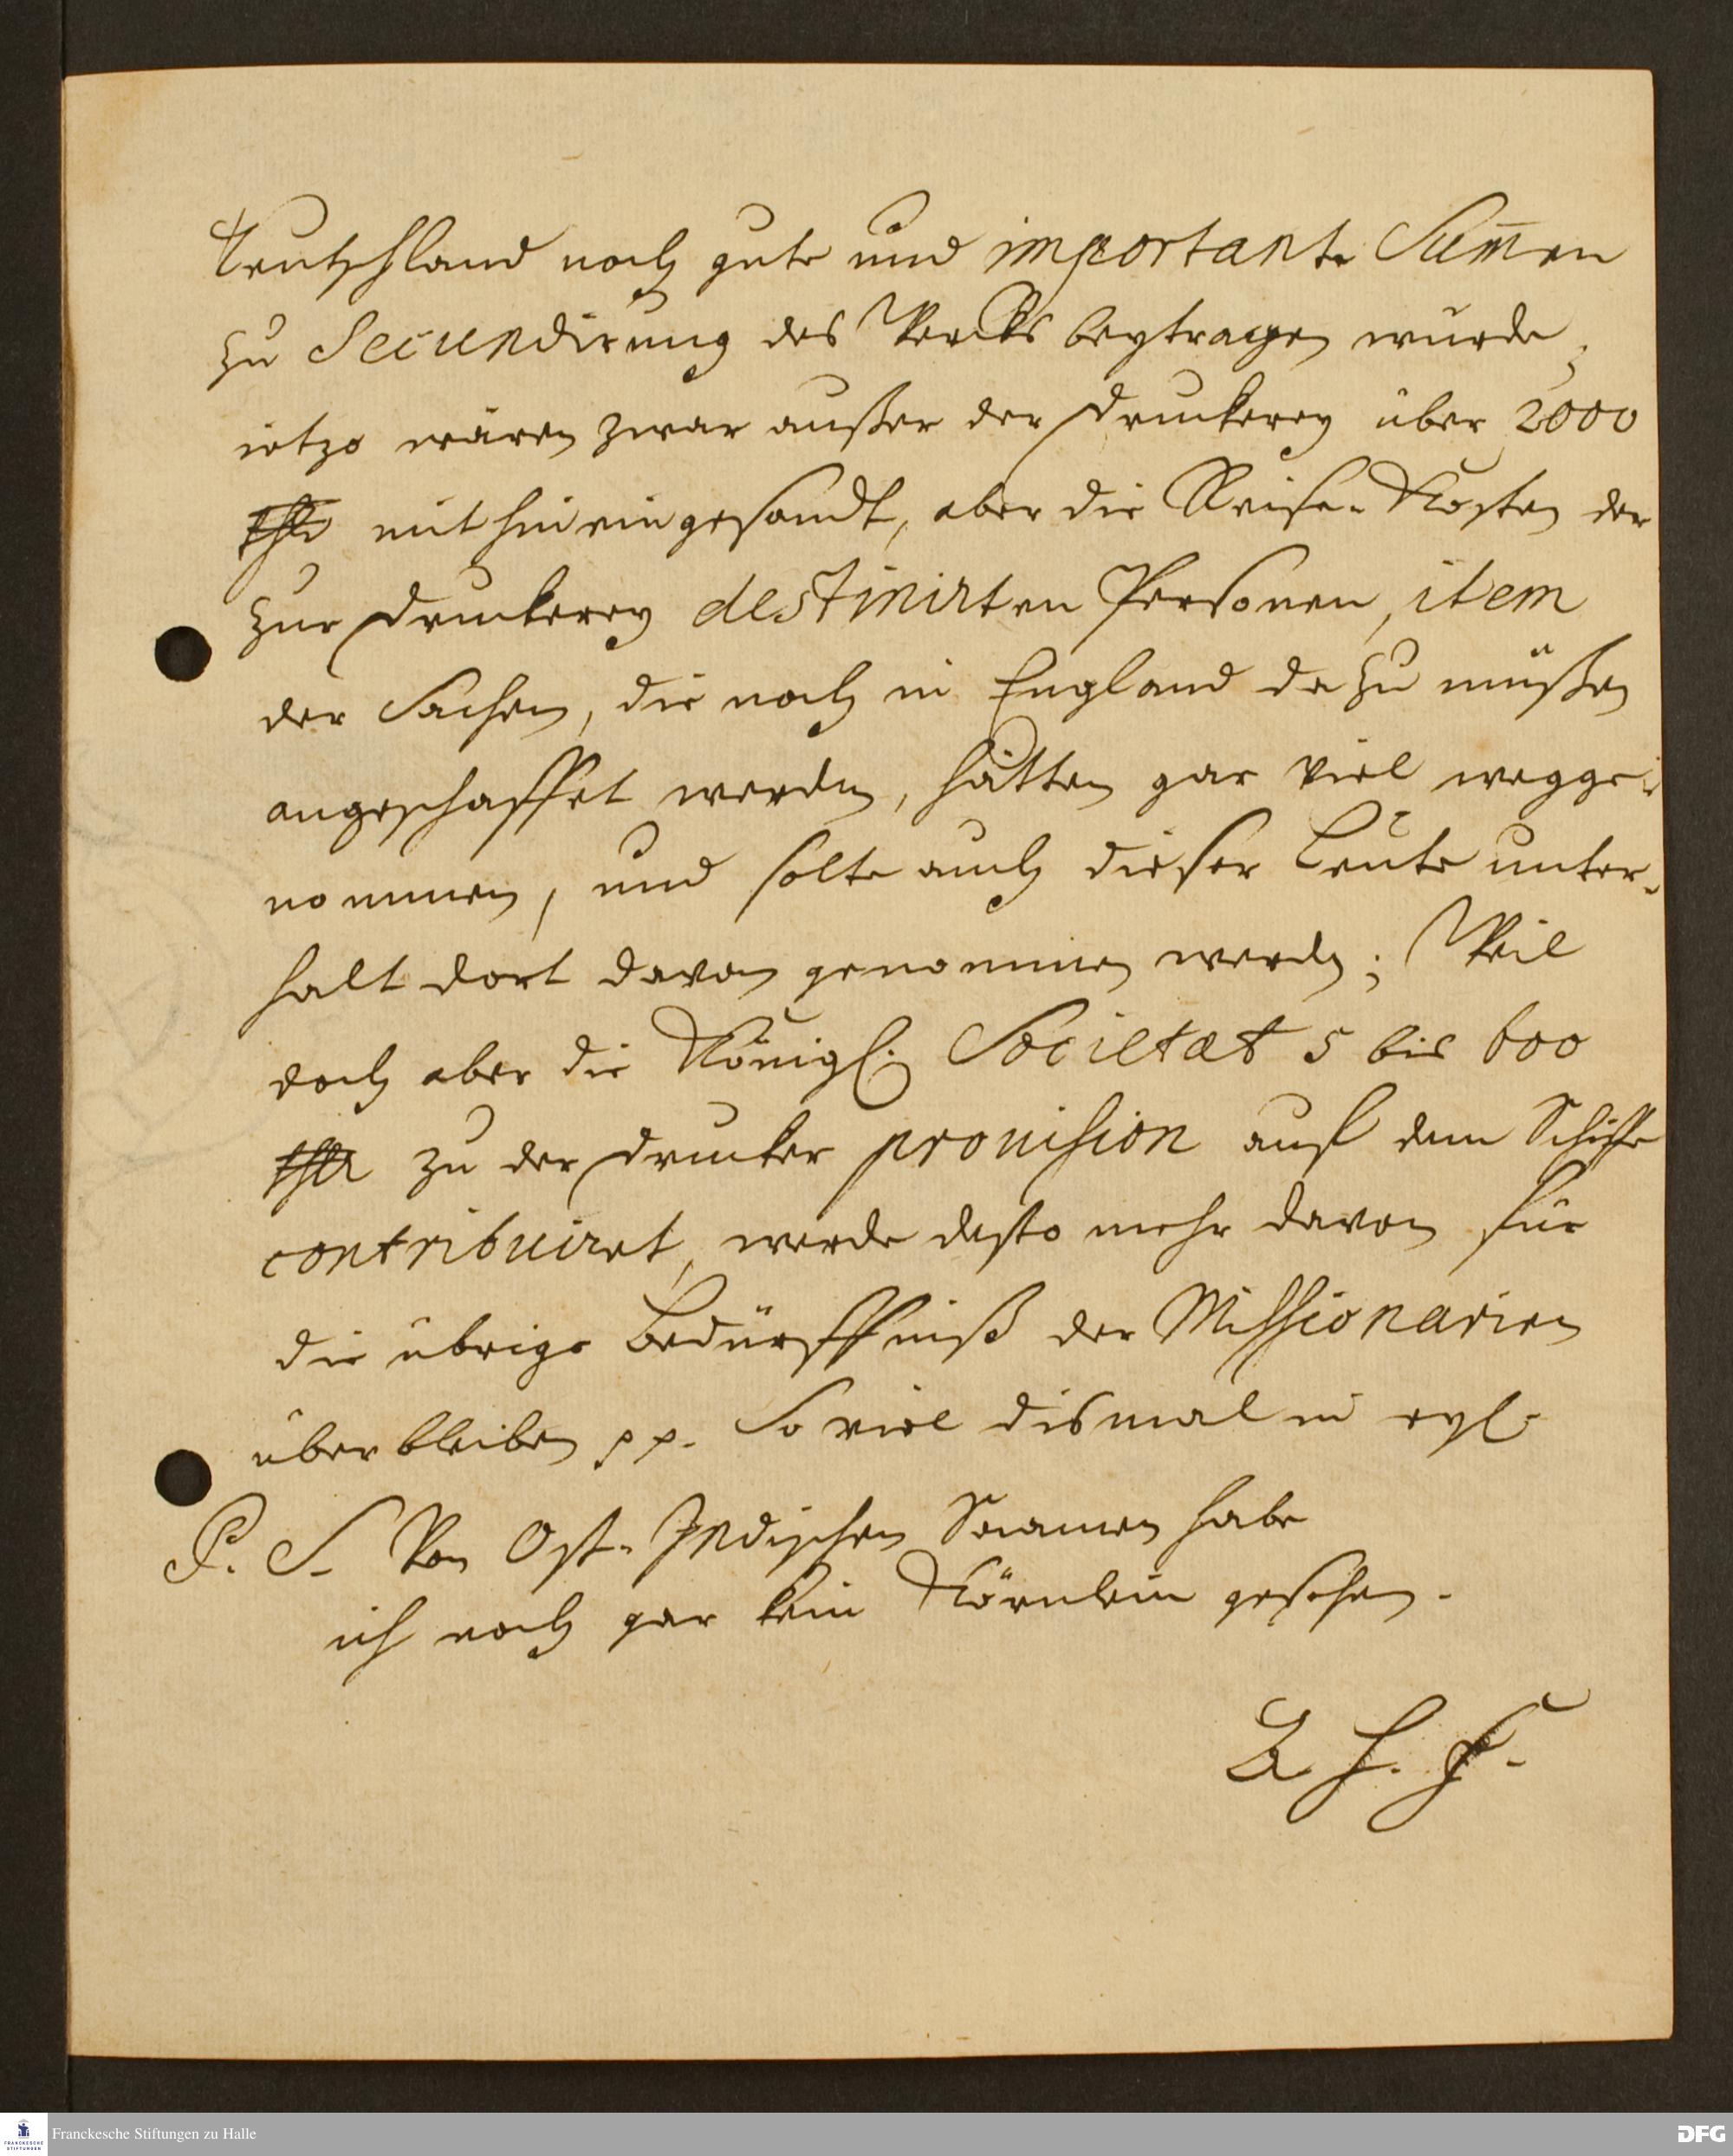 Teutschland noch gute und importante Sum̅en
zu Secundirung des Wercks beytragen würde;
ietzo wären zwar außer der Druckerey über 2000
thlr mit hineingesandt, aber die Reise-Kosten der
zur Druckerey destinirten Personen, item
der Sachen, die noch in England dazu müßen
angeschaffet werden, hätten gar viel wegge-
nommen, und solte auch dieser Leute unter-
halt dort davon genommen werden; Weil
doch aber die Königl. Societæt 5 bis 600
thlr zu der Drucker provision auf dem Schiffe
contribuiret, werde desto mehr davon für
die übrige Bedürffniß der Missionarien
über bleiben pp. So viel dismal in eyl.
P. S. Von Ost-Indischen Saamen habe
ich noch gar kein Körnlein gesehen.
A. H. F.
Franckesche Stiftungen zu Halle
FRANCKESCHE
STIFTUNGEN
DFG